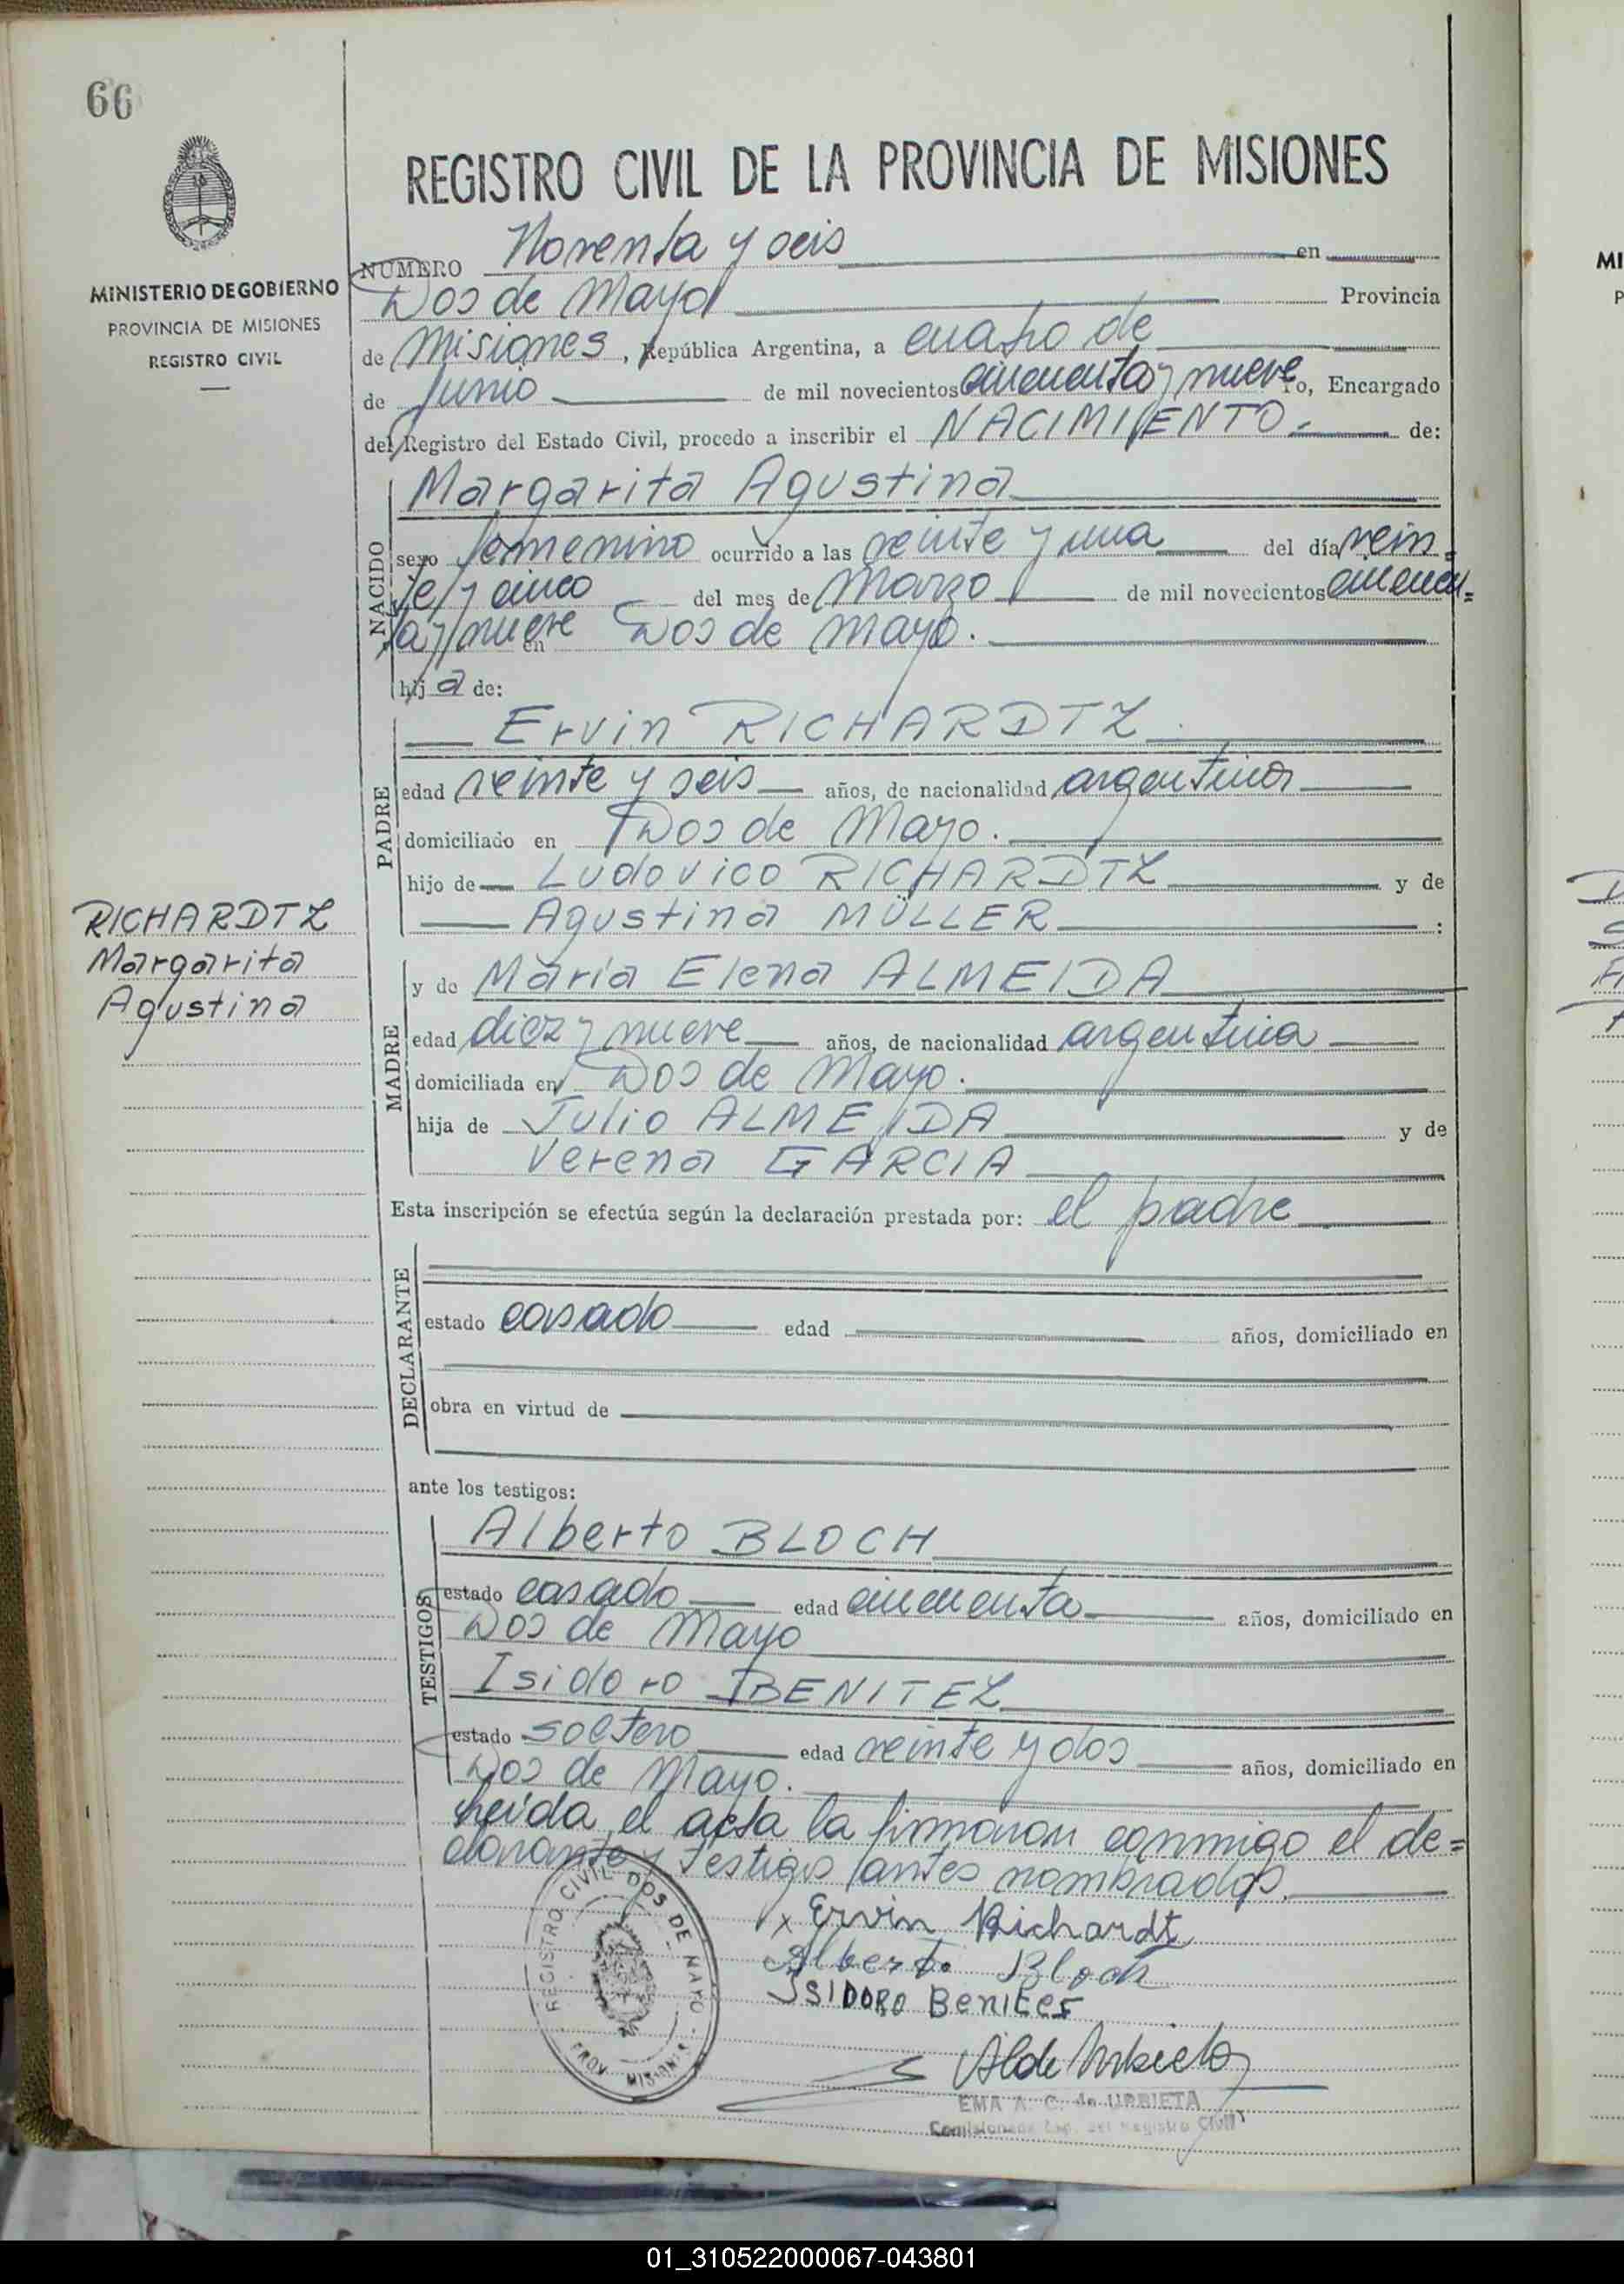 66
REGISTRO CIVIL DE LA PROVINCIA DE MISIONES
MINISTERIO DE GOBIERNO
PROVINCIA DE MISIONES
REGISTRO CIVIL
NUMERO Noventa y seis en
Dos de Mayo Provincia
de Misiones, República Argentina, a cuatro de
de Junio de mil novecientos cincuenta y nueve, Encargado
del Registro del Estado Civil, procedo a inscribir el NACIMIENTO.- de:
NACIDO
Margarita Agustina
sexo femenino ocurrido a las veinte y una del día vein=
te y cinco del mes de Marzo de mil novecientos cincuen=
ta y nueve en Dos de Mayo.
hij a de:
PADRE
Ervin RICHARDTZ
edad veinte y seis años, de nacionalidad argentina
domiciliado en Dos de Mayo.
hijo de Ludovico RICHARDTZ y de
Agustina MÜLLER :
RICHARDTZ
Margarita
Agustina
MADRE
y de María Elena ALMEIDA
edad diez y nueve años, de nacionalidad argentina
domiciliada en Dos de Mayo.
hija de Julio ALMEIDA y de
Verena GARCIA
Esta inscripción se efectúa según la declaración prestada por: el padre
DECLARANTE
estado casado edad años, domiciliado en
obra en virtud de
ante los testigos:
TESTIGOS
Alberto BLOCH
estado casado edad cincuenta años, domiciliado en
Dos de Mayo
Isidoro BENITEZ
estado soltero edad veinte y dos años, domiciliado en
Dos de Mayo.
Leida el acta la firmaron conmigo el de=
clarante y testigos antes nombrados.
x Ervin Richardt
Alberto Bloch
ISIDORO BENITES
REGISTRO CIVIL DOS DE MAYO
PROV. MISIONES
EMA A. C. de URBIETA
Registro Civil
01_310522000067-043801